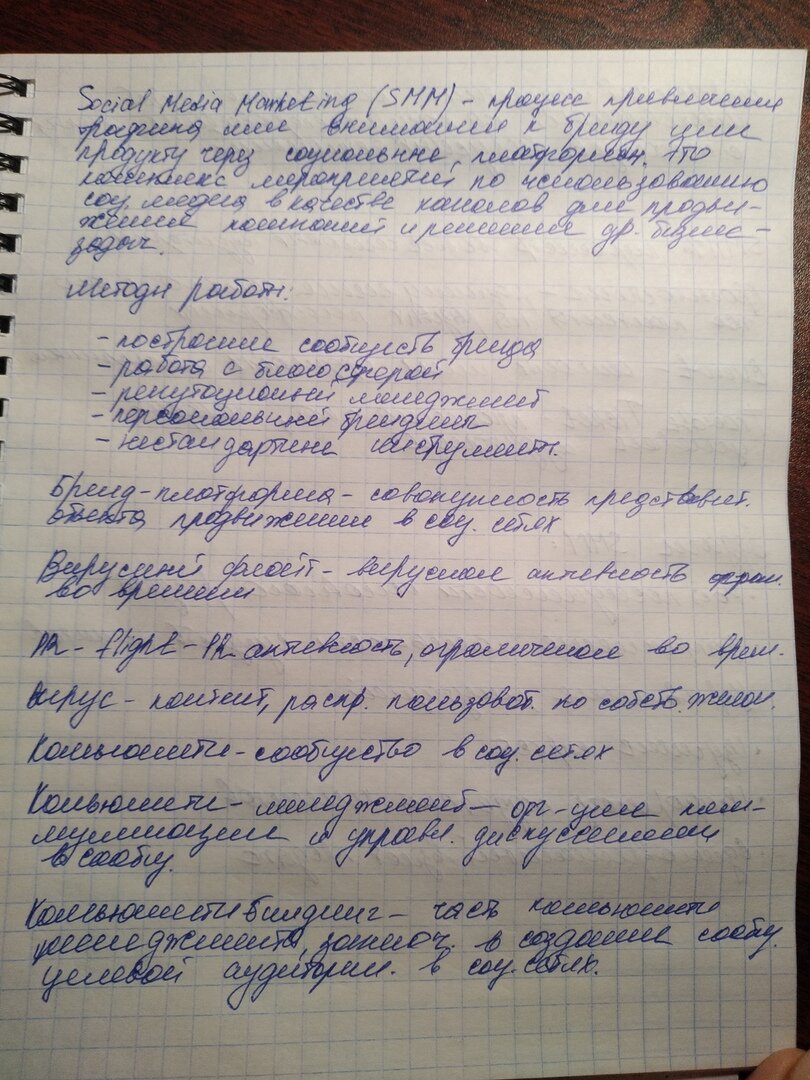 Social Media Marketing (SMM) - процесс привлечения
трафика или внимания к бренду или
продукту через социальные платформы. Это
комплекс мероприятий по использованию
соц. медиа в качестве каналов для продви-
жения компаний и решения др. бизнес-
задач.
Методы работы:
- построение сообществ бренда
- работа с блогосферой
- репутационный менеджмент
- персональный брендинг
- нестандартные инструменты.
Бренд-платформа - совокупность представит.
объекта продвижения в соц. сетях
Вирусный флайт - вирусная активность огран.
во времени
PR - flight - PR активность, ограниченная во врем.
Вирус - контент, распр. пользоват. по собств. желан.
Комьюнити - сообщество в соц. сетях
Комьюнити - менеджмент - орг-ция ком-
муникации и управл. дискуссиями
в сообщ.
Комьюнити билдинг - часть комьюнити
менеджмента, заключ. в создании сообщ.
целевой аудитории. в соц. сетях.